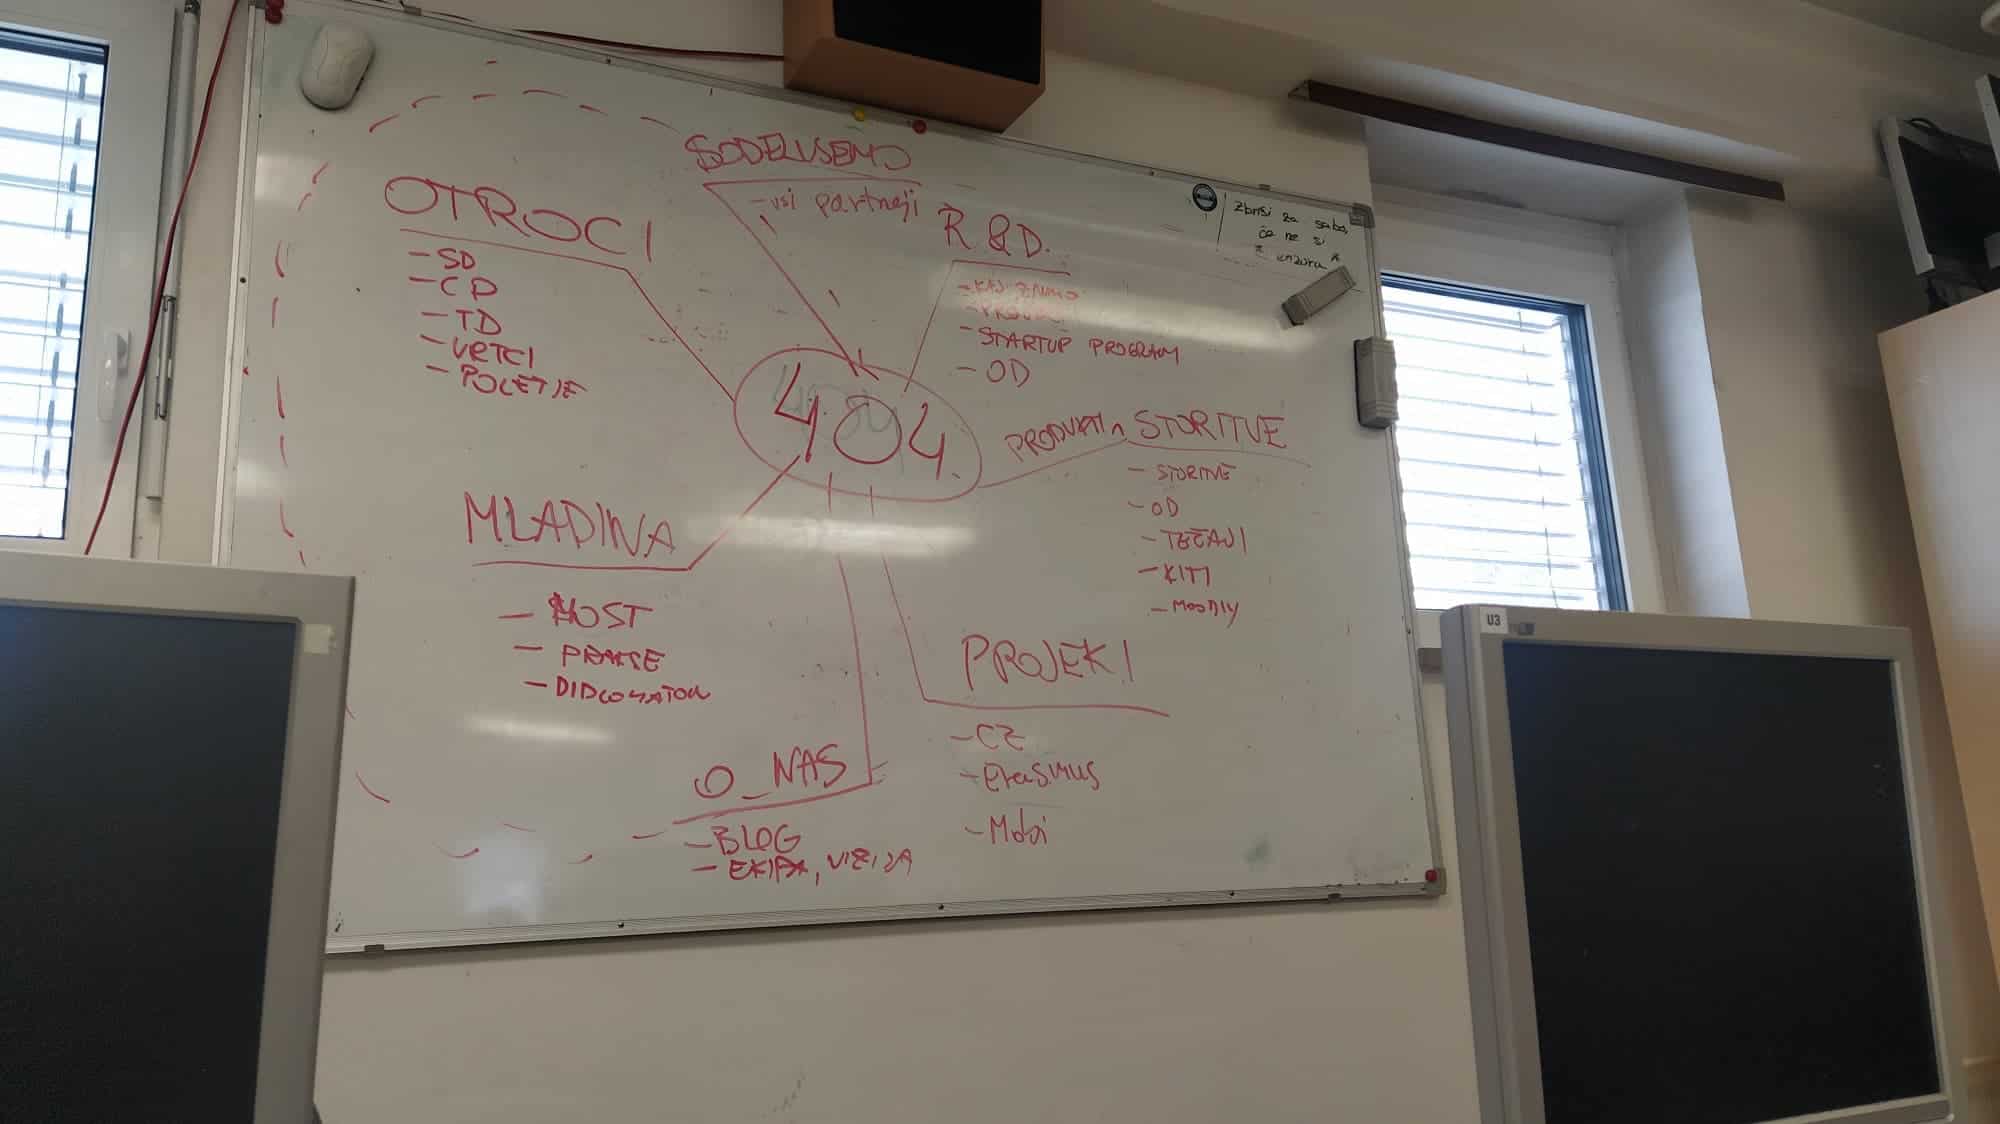 SODELUJEMO
- vsi partnerji
OTROCI
- SD
- CD
- TD
- VRTCI
- POLETJE
R&D.
- KAJ ZNAMO
- STARTUP PROGRAM
- OD
Zbriši za sabo,
če ne si
404
PRODUKTI in STORITVE
- STORITVE
- OD
- TEČAJI
- KITI
MLADINA
- HOST
- PRAKSE
PROJEKTI
- CZ
- Erasmus
- Mobi
O_NAS
- BLOG
- EKIPA, VIZIJA
U3